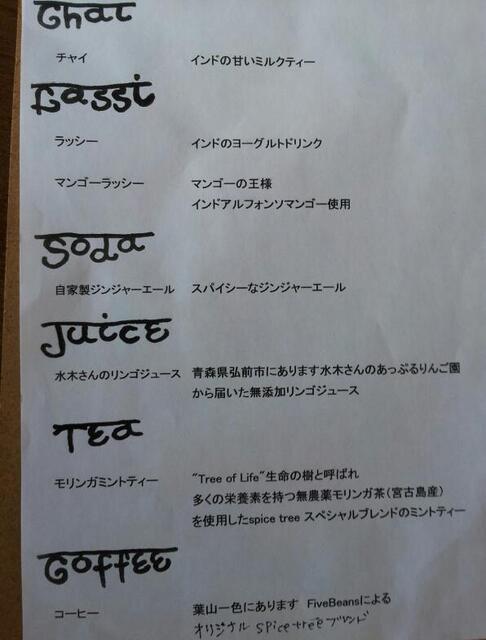 Chai
チャイ インドの甘いミルクティー
Lassi
ラッシー インドのヨーグルトドリンク
マンゴーラッシー マンゴーの王様
インドアルフォンソマンゴー使用
Soda
自家製ジンジャーエール スパイシーなジンジャーエール
Juice
水木さんのリンゴジュース 青森県弘前市にあります水木さんのあっぷるりんご園
から届いた無添加リンゴジュース
TEa
モリンガミントティー "Tree of Life"生命の樹と呼ばれ
多くの栄養素を持つ無農薬モリンガ茶(宮古島産)
を使用したspice tree スペシャルブレンドのミントティー
CoffEE
コーヒー 葉山一色にあります FiveBeansによる
オリジナル spice treeブレンド